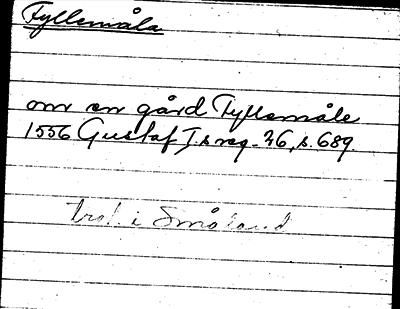 Fyllemåla
om en gård Fyllemåle
1556 Gustaf I:s reg. 26, s. 689.
trol. i Småland